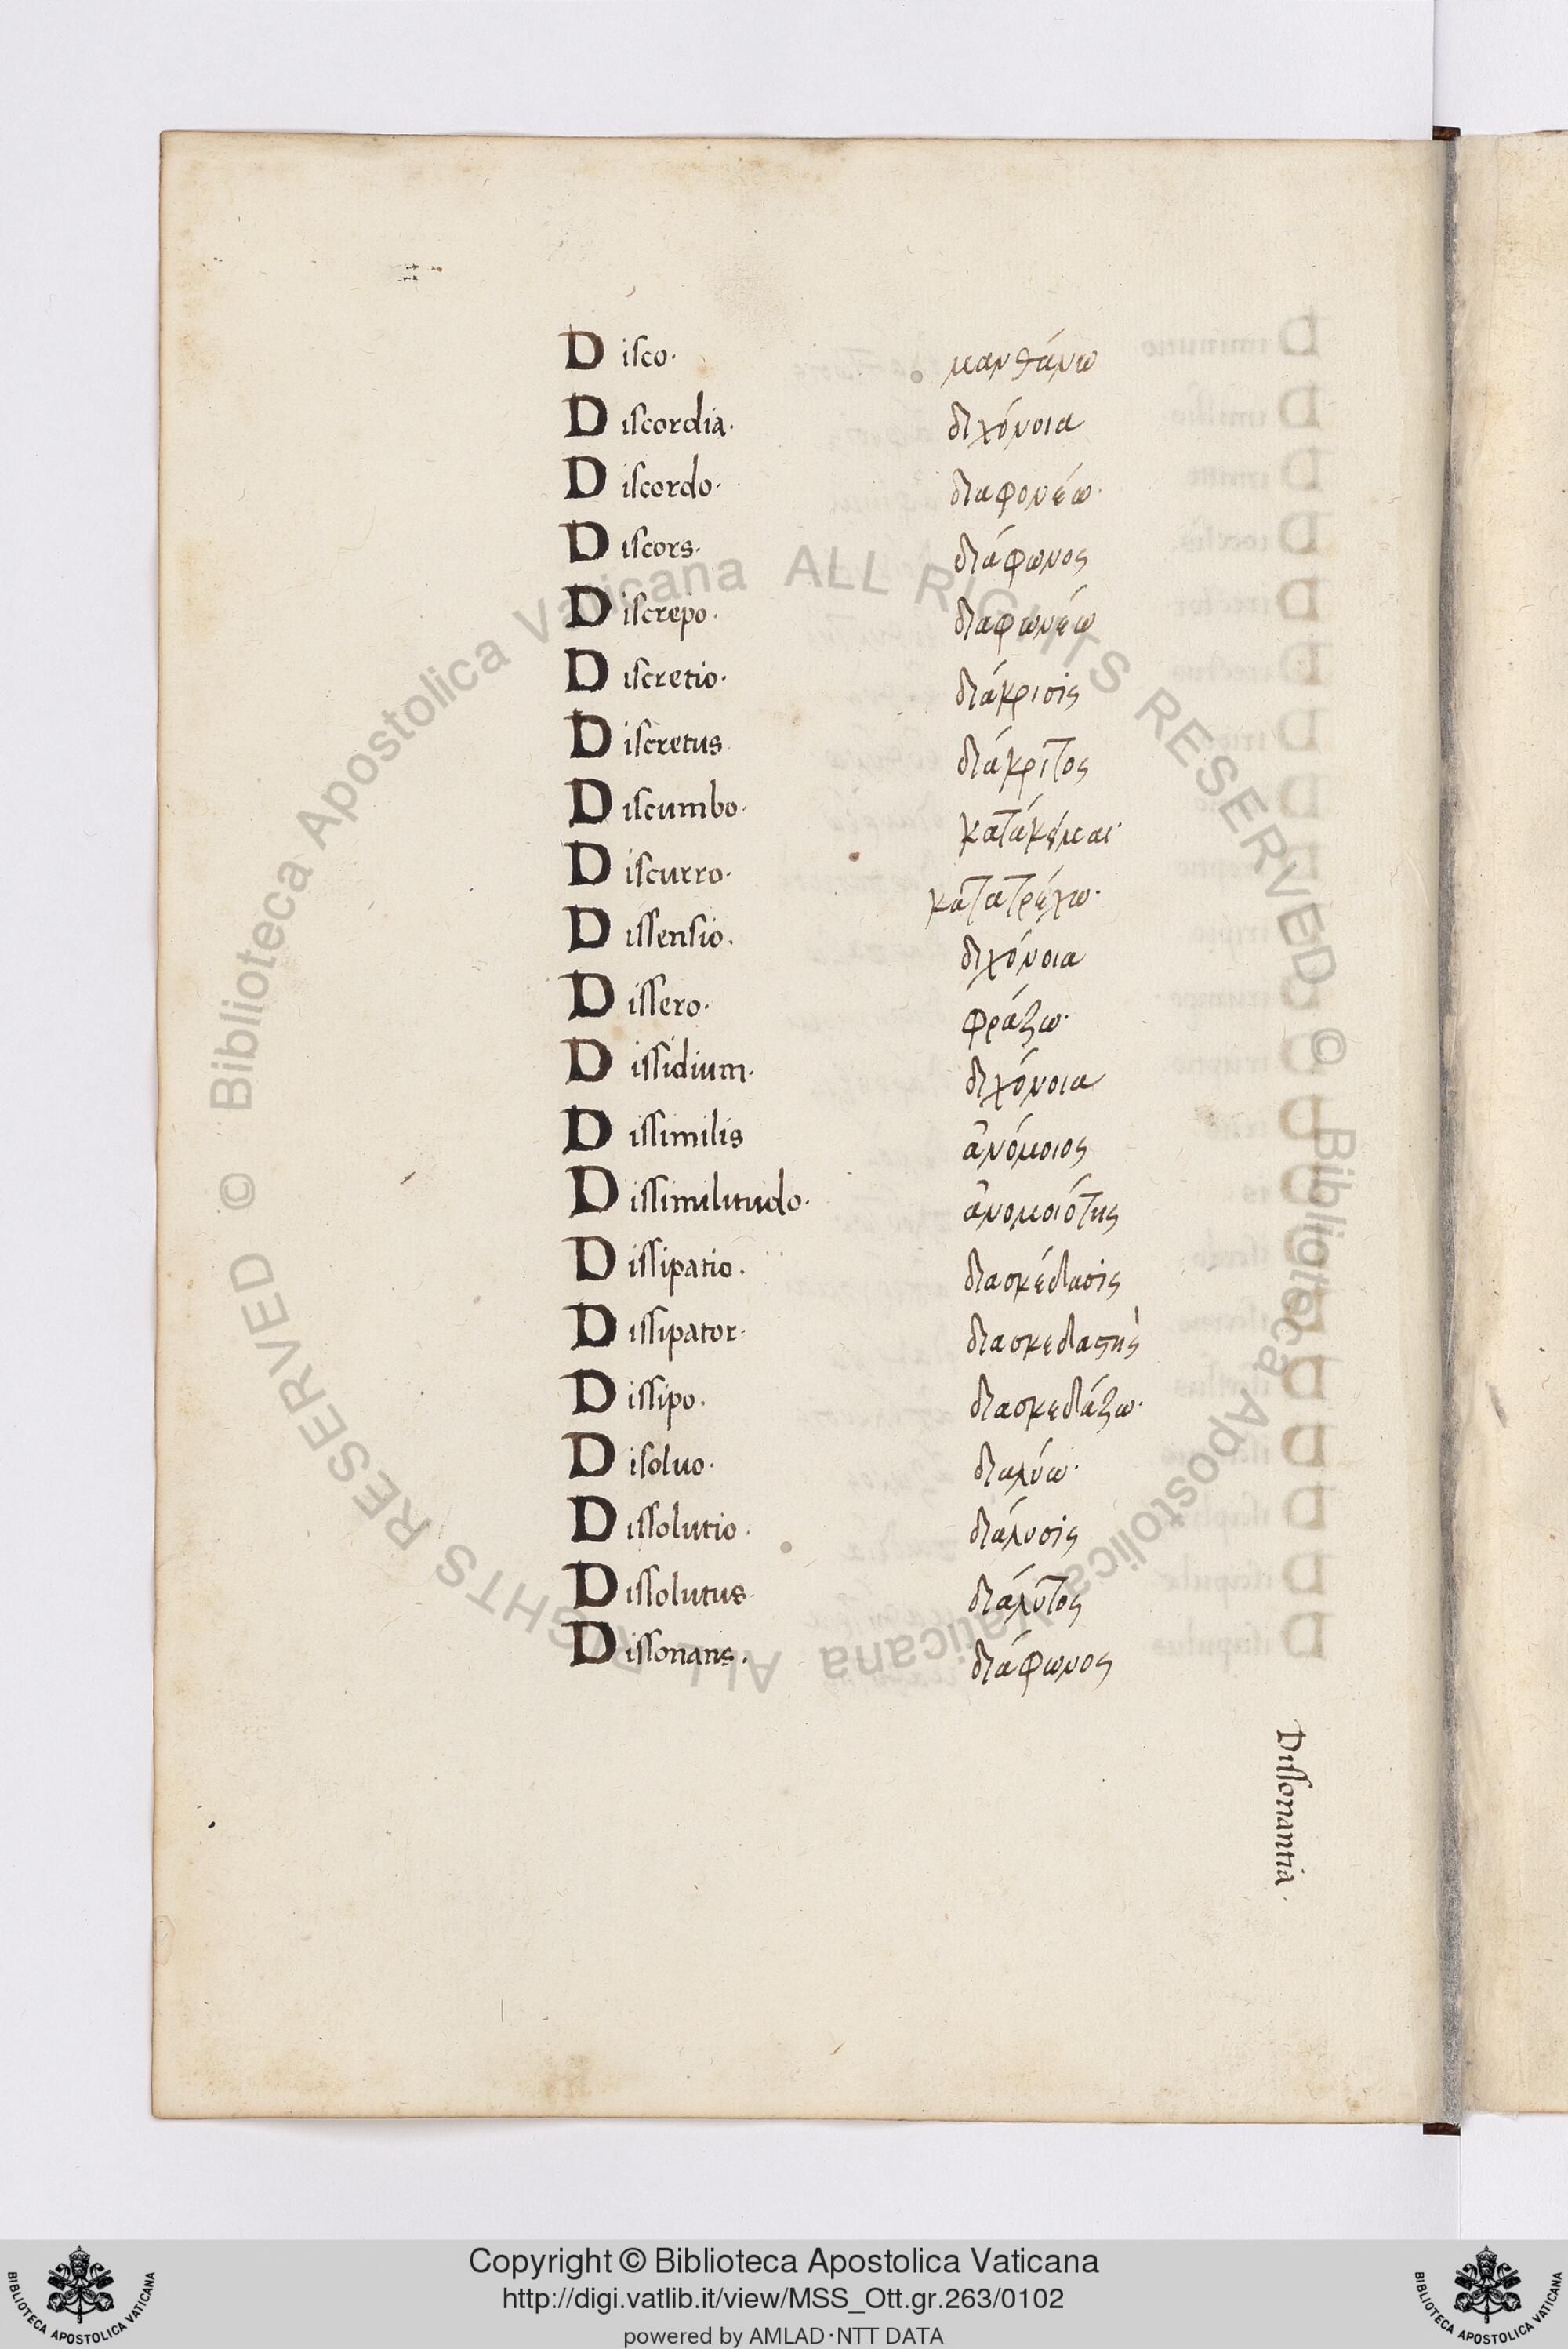 Disco. μανθάνω
Discordia. διχόνοια
Discordo. διαφονέω.
Discors. διάφωνος
Discrepo. διαφωνέω
Discretio. διάκρισις
Discretus διάκριτος
Discumbo. κατάκειμαι.
Discurro. κατατρέχω.
Dissensio. διχόνοια
Dissero. φράζω.
Dissidium. διχόνοια
Dissimilis ἀνόμοιος
Dissimilitudo. ἀνομοιότης
Dissipatio. διασκέδασις
Dissipator. διασκεδαστὴς
Dissipo. διασκεδάζω.
Disoluo. διαλύω.
Dissolutio. διάλυσις
Dissolutus. διάλυτος
Dissonans. διάφωνος
Dissonantia.
© Biblioteca Apostolica Vaticana ALL RIGHTS RESERVED
© Biblioteca Apostolica Vaticana ALL RIGHTS RESERVED
Copyright © Biblioteca Apostolica Vaticana
http://digi.vatlib.it/view/MSS_Ott.gr.263/0102
powered by AMLAD·NTT DATA
BIBLIOTECA APOSTOLICA VATICANA
BIBLIOTECA APOSTOLICA VATICANA